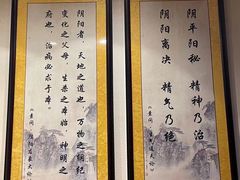 阴平阳秘 精神乃治
阴阳离决 精气乃绝
《素问·生气通天论》
阴阳者，天地之道也，万物之纲纪
变化之父母，生杀之本始，神明之
府也，治病必求于本。
《素问·阴阳应象大论》